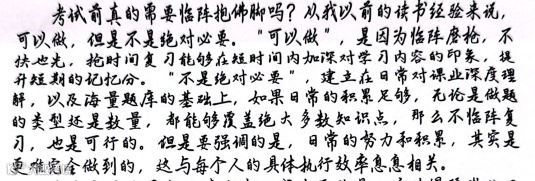 考试前真的需要临阵抱佛脚吗？从我以前的读书经验来说，
可以做，但是不是绝对必要。“可以做”，是因为临阵磨枪，不
快也光，抢时间复习能够在短时间内加深对学习内容的印象，提
升短期的记忆分。“不是绝对必要”，建立在日常对课业深度理
解，以及海量题库的基础上，如果日常的积累足够，无论是做题
的类型还是数量，都能够覆盖绝大多数知识点，那么不临阵复
习，也是可行的。但是要强调的是，日常的努力和积累，其实是
更难完全做到的，这与每个人的具体执行效率息息相关。